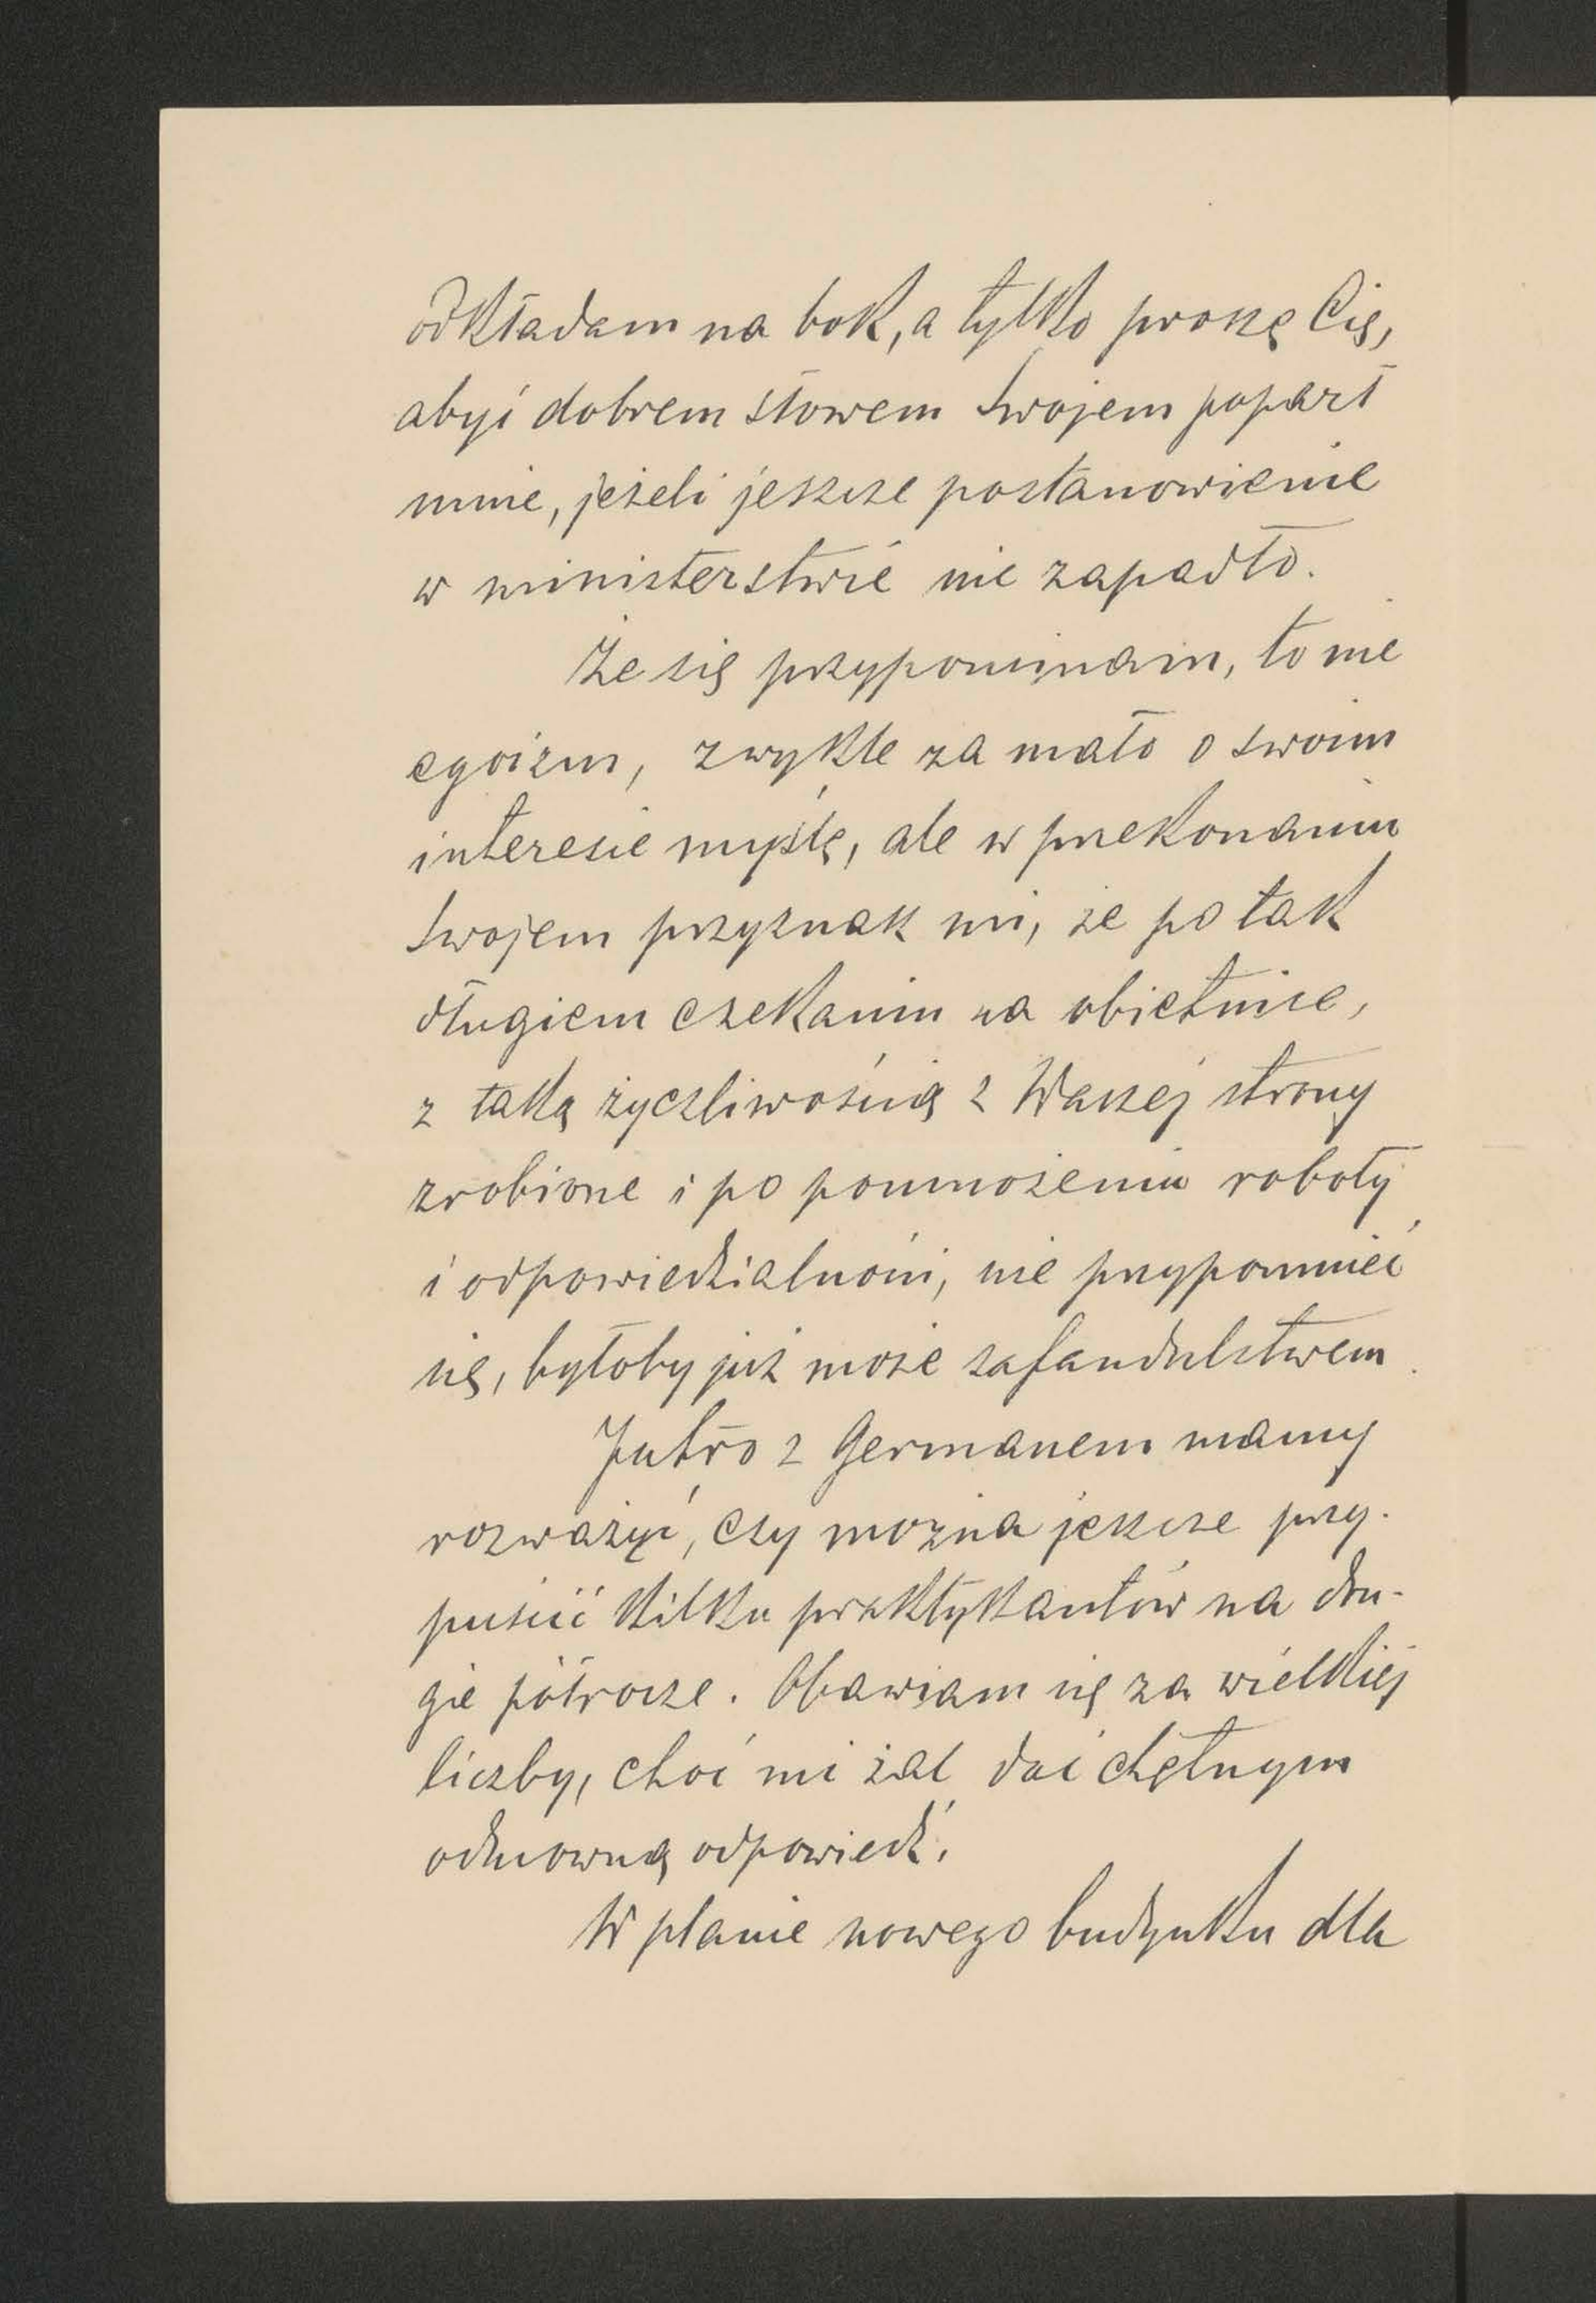 odkładam na bok, a tylko proszę Cię,
abyś dobrem słowem swojem poparł
mnie, jeżeli jeszcze postanowienie
w ministerstwie nie zapadło.
Że się przypominam, to nie
egoizm, zwykle za mało o swoim
interesie myślę, ale w przekonaniu
swojem przyznasz mi, że po tak
długiem czekaniu na obietnice,
z taką życzliwością z Waszej strony
zrobione i po pomnożeniu roboty
i odpowiedzialności, nie przypomnieć
się, byłoby już może safandulstwem.
Jutro z Germanem mamy
rozważyć, czy można jeszcze przy-
puścić kilku praktykantów na dru-
gie półrocze. Obawiam się za wielkiej
liczby, choć mi żal dać chętnym
odmowną odpowiedź.
W planie nowego budynku dla